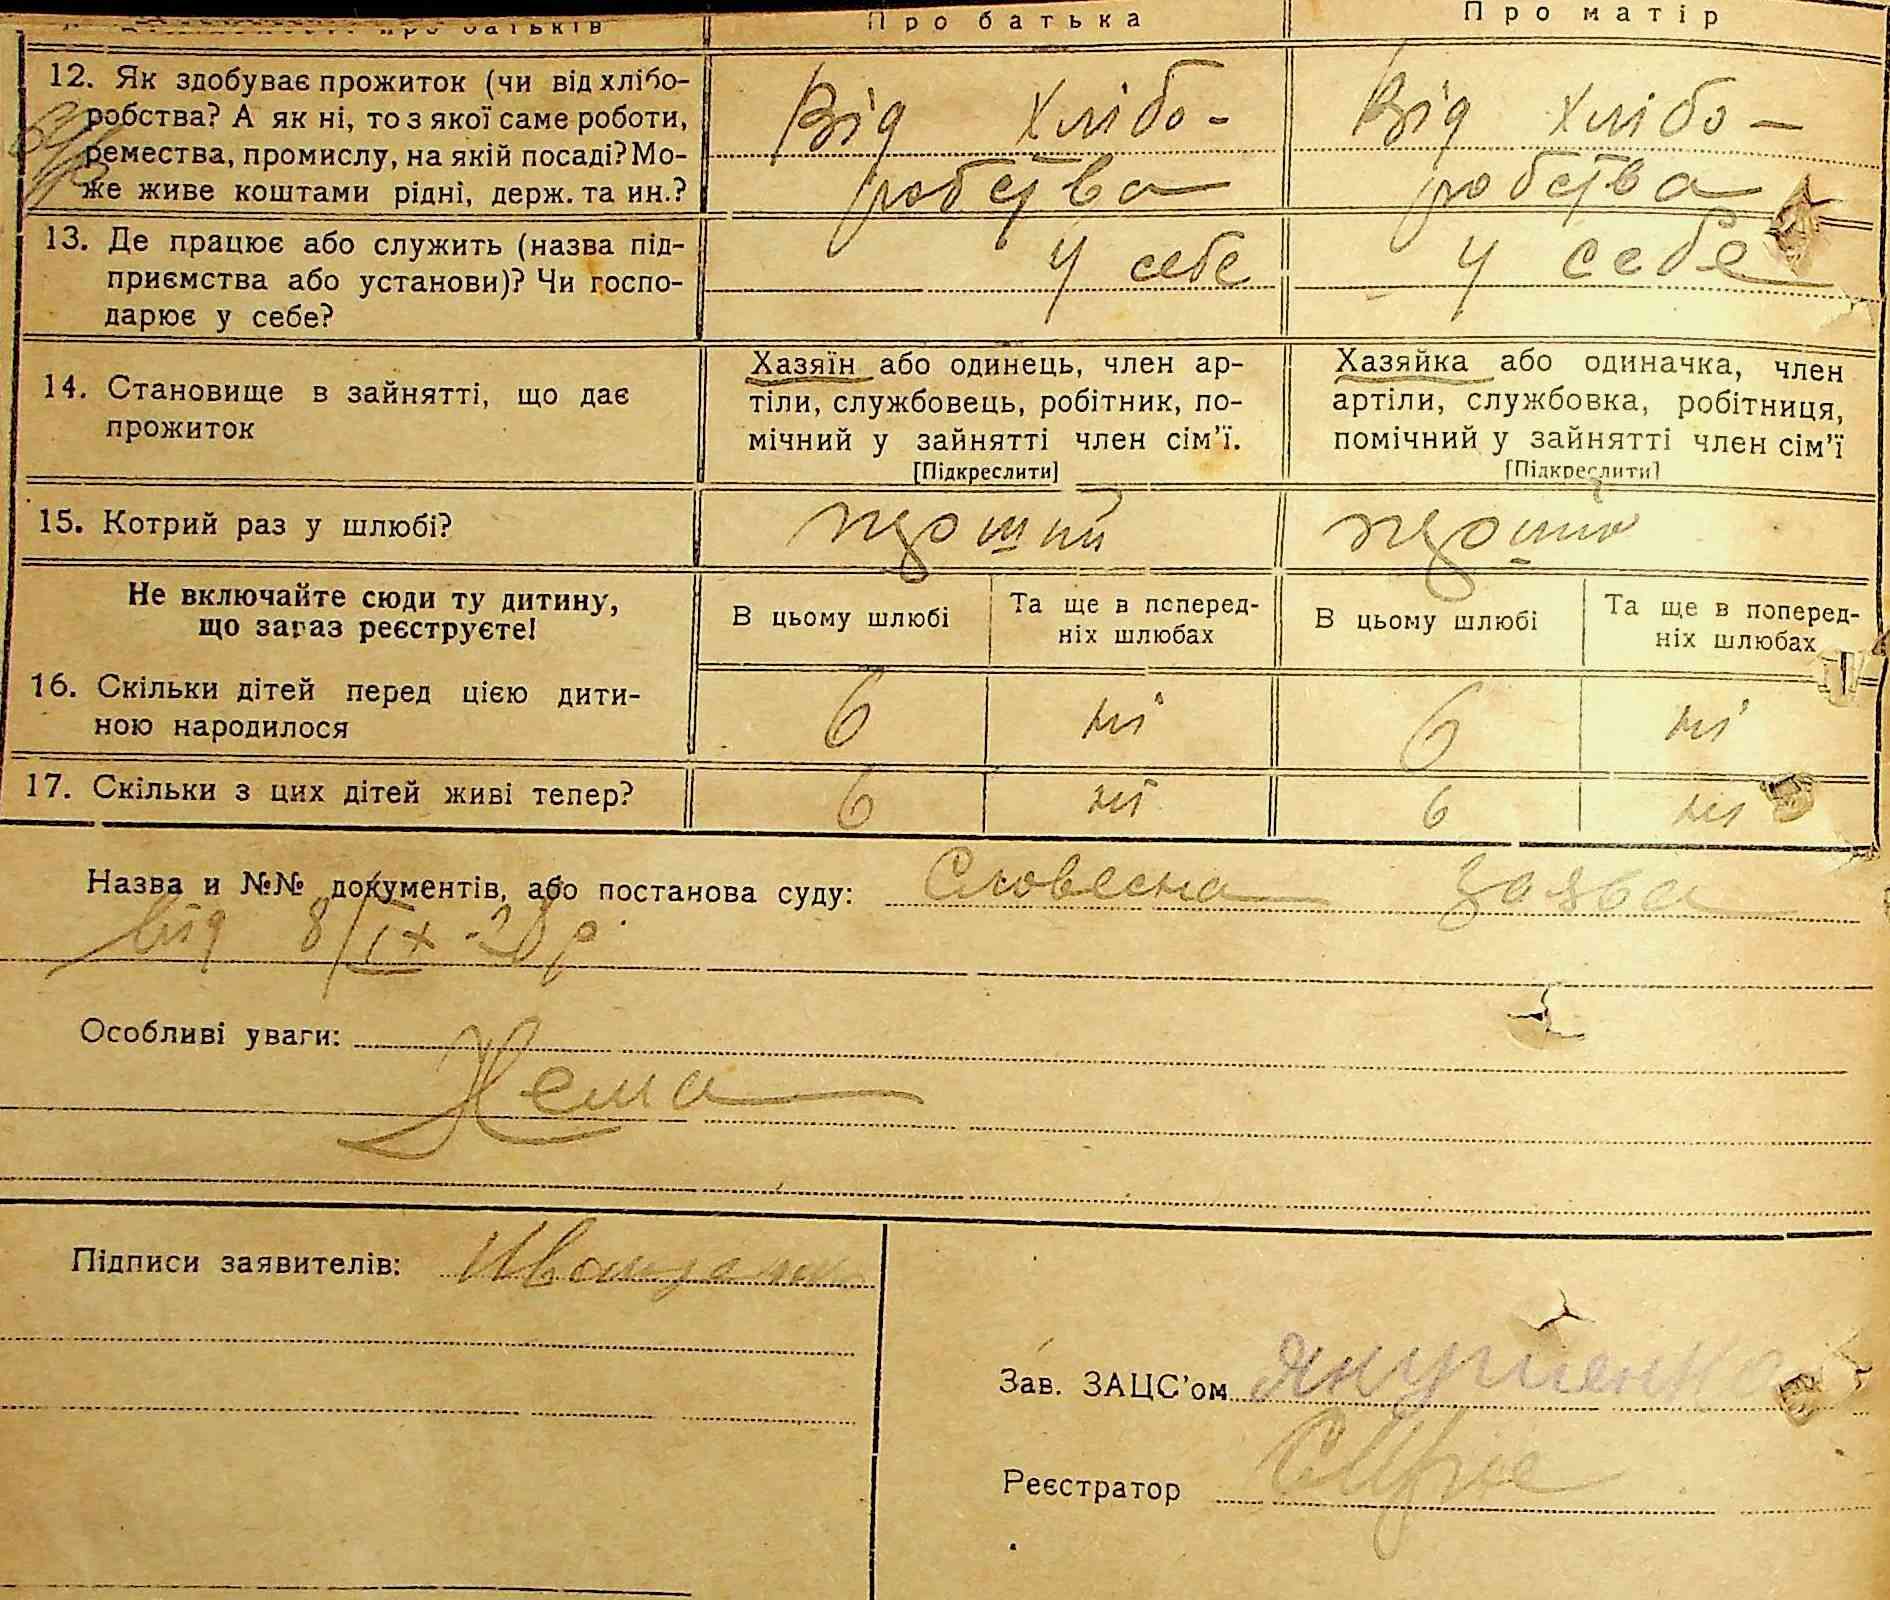 про батьків Про батька Про матір
12. Як здобуває прожиток (чи від хлібо-
робства? А як ні, то з якої саме роботи,
ремества, промислу, на якій посаді? Мо-
же живе коштами рідні, держ. та ин.?
Від хлібо-
робства
Від хлібо-
робства
13. Де працює або служить (назва під-
приємства або установи)? Чи госпо-
дарює у себе?
у себе
у себе
14. Становище в зайнятті, що дає
прожиток
Хазяїн або одинець, член ар-
тіли, службовець, робітник, по-
мічний у зайнятті член сім'ї.
[Підкреслити]
Хазяйка або одиначка, член
артіли, службовка, робітниця,
помічний у зайнятті член сім'ї
[Підкреслити]
15. Котрий раз у шлюбі?
Не включайте сюди ту дитину,
що зараз реєструєте!
В цьому шлюбі
Та ще в поперед-
ніх шлюбах
В цьому шлюбі
Та ще в поперед-
ніх шлюбах
16. Скільки дітей перед цією дити-
ною народилося
6 ні 6 ні
17. Скільки з цих дітей живі тепер?
6 ні 6 ні
Назва и №№ документів, або постанова суду: Словесна заява
від 8/IX
Особливі уваги:
Нема
Підписи заявителів:
Зав. ЗАЦС'ом Якушенко
Реєстратор